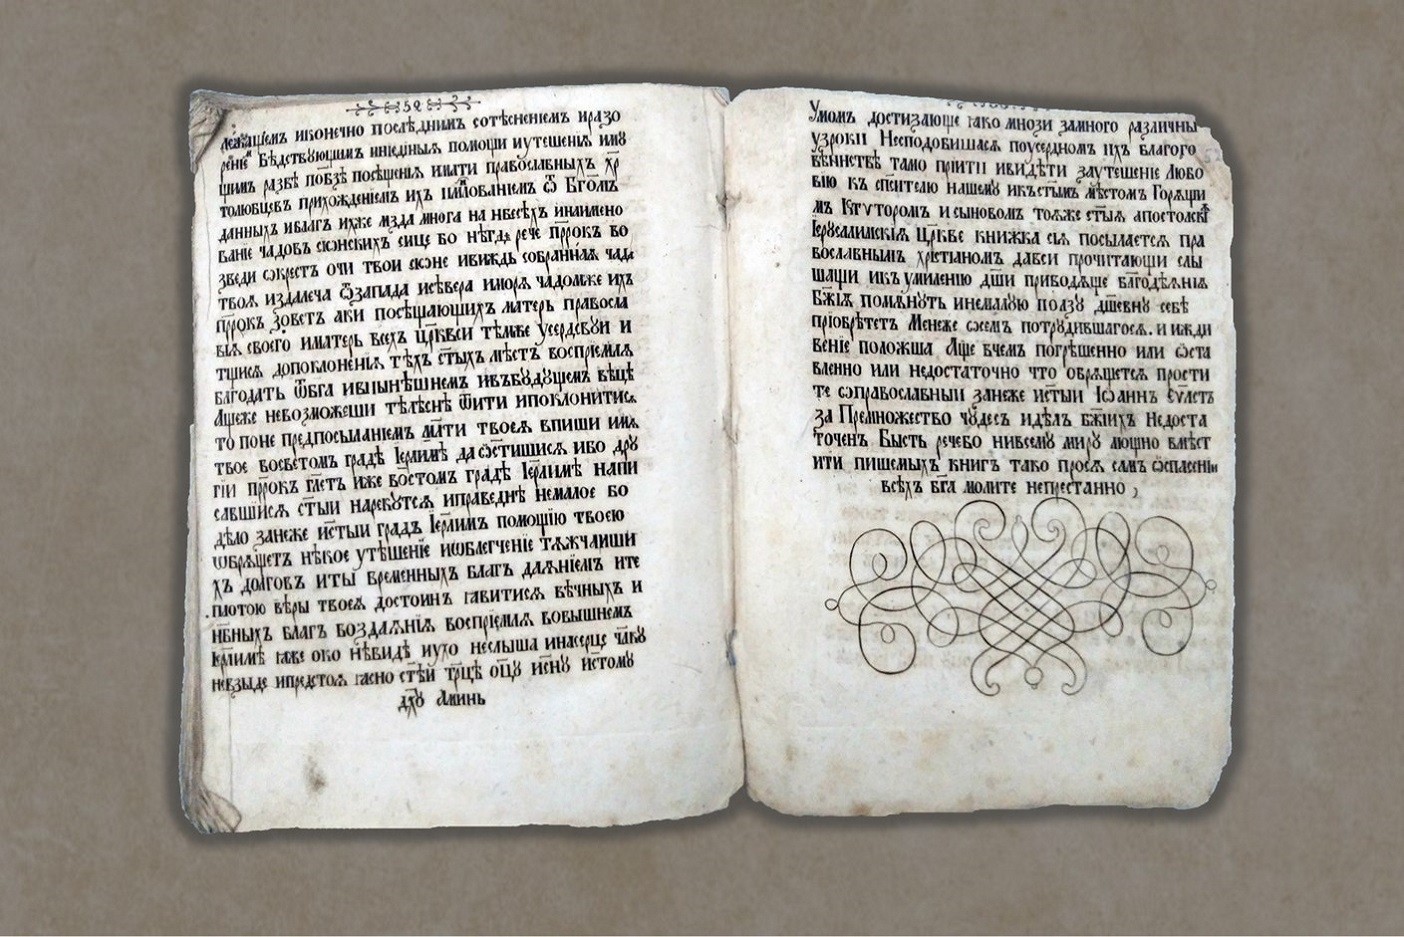 52
лежащїемъ иконечно послѣднимъ сотѣсненїемъ иразо
ренїемъ Бѣдствующимъ инединыя помощи иутешенїя иму
щимъ развѣ повзѣ посѣщенїя имѣти православныхъ хр̑
толюбцевъ прихожденїемъ ихъ имлованїемъ ѿ Бго̑мъ
данныхъ иблагъ ихже мзда многа на нбесѣхъ инаимено
ванїе чадовъ сїѡнскихъ сице бо нѣгдѣ рече пррокъ во
зведи ѡкрестъ очи твои сїѡне ивиждь собранная чада
твоя издалеча ѿзапада исѣвера иморя чадомже ихъ
пррокъ зоветъ аки посѣщающихъ матерь правосла
вїя своего иматерь всѣхъ црквеи тѣмже усердствуи и
тщися допоклоненїя тѣхъ стыхъ мѣстъ воспрїемля
благодать ѿбга ивнынѣшнемъ ивъбудущемъ вѣцѣ
Ащеже невозможеши тѣлеснѣ ѿити ипоклонитися
то поне предпосыланїемъ млти твоея впиши имя
твое восветомъ градѣ Іерлимѣ да ѡстишися ибо дру
гїи пррокъ глетъ иже востомъ градѣ Іерлимѣ напи
савшися стыи нарекутся иправеднѣ немалое бо
дѣло занеже истыи градъ Іерлимъ помощїю твоею
ѡбрящетъ нѣкое утѣшенїе иѡблегченїе тяжчаиши
хъ долговъ иты временныхъ благъ даянїемъ ите
плотою вѣры твоея достоинъ явитися вѣчныхъ и
нбныхъ благъ воздаянїя воспрїемля вовышнемъ
Іерлимѣ яже око невидѣ иухо неслыша инасерце члку
невзыде ипредстоя ясно стѣи трцѣ оцу исну истому
дху Аминь
Умомъ достизающе яко мнози замного различны
узроки Несподобишася поусердномъ ихъ благого
вѣинствѣ тамо прїити ивидѣти заутешенїе Любо
вїю къ спсителю нашему икъстымъ мѣстомъ Горящи
мъ Ктиторомъ исыновомъ тояже стыя апостолскїя
Іерусалимскїя Цркве книжка сїя посылается пра
вославнымъ хрїстїаномъ дабси прочитающи слы
шащи икъумиленїю дши приводяще блгодѣянїя
Бжїя помянутъ инемалую ползу дшевну себѣ
прїобрѣтетъ Менеже ѡсемъ потрудившагося. и ижди
венїе положша Аще вчемъ погрѣшенно или ѡста
вленно или недостаточно что ѡбрящется прости
те ѡправославныи занеже истыи Іѡаннъ Еѵлстъ
за Премножество чудесъ идѣлъ бжїихъ Недоста
точенъ Бысть речебо нивсему миру мощно вмѣст
ити пишемыхъ книгъ тако прося самъ ѡспасенїи
всѣхъ бга молите непрестанно